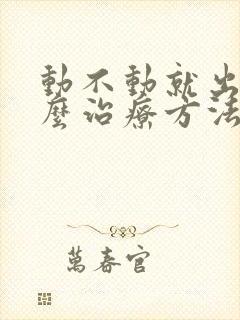 動不動就出
麼治療方法
萬春官